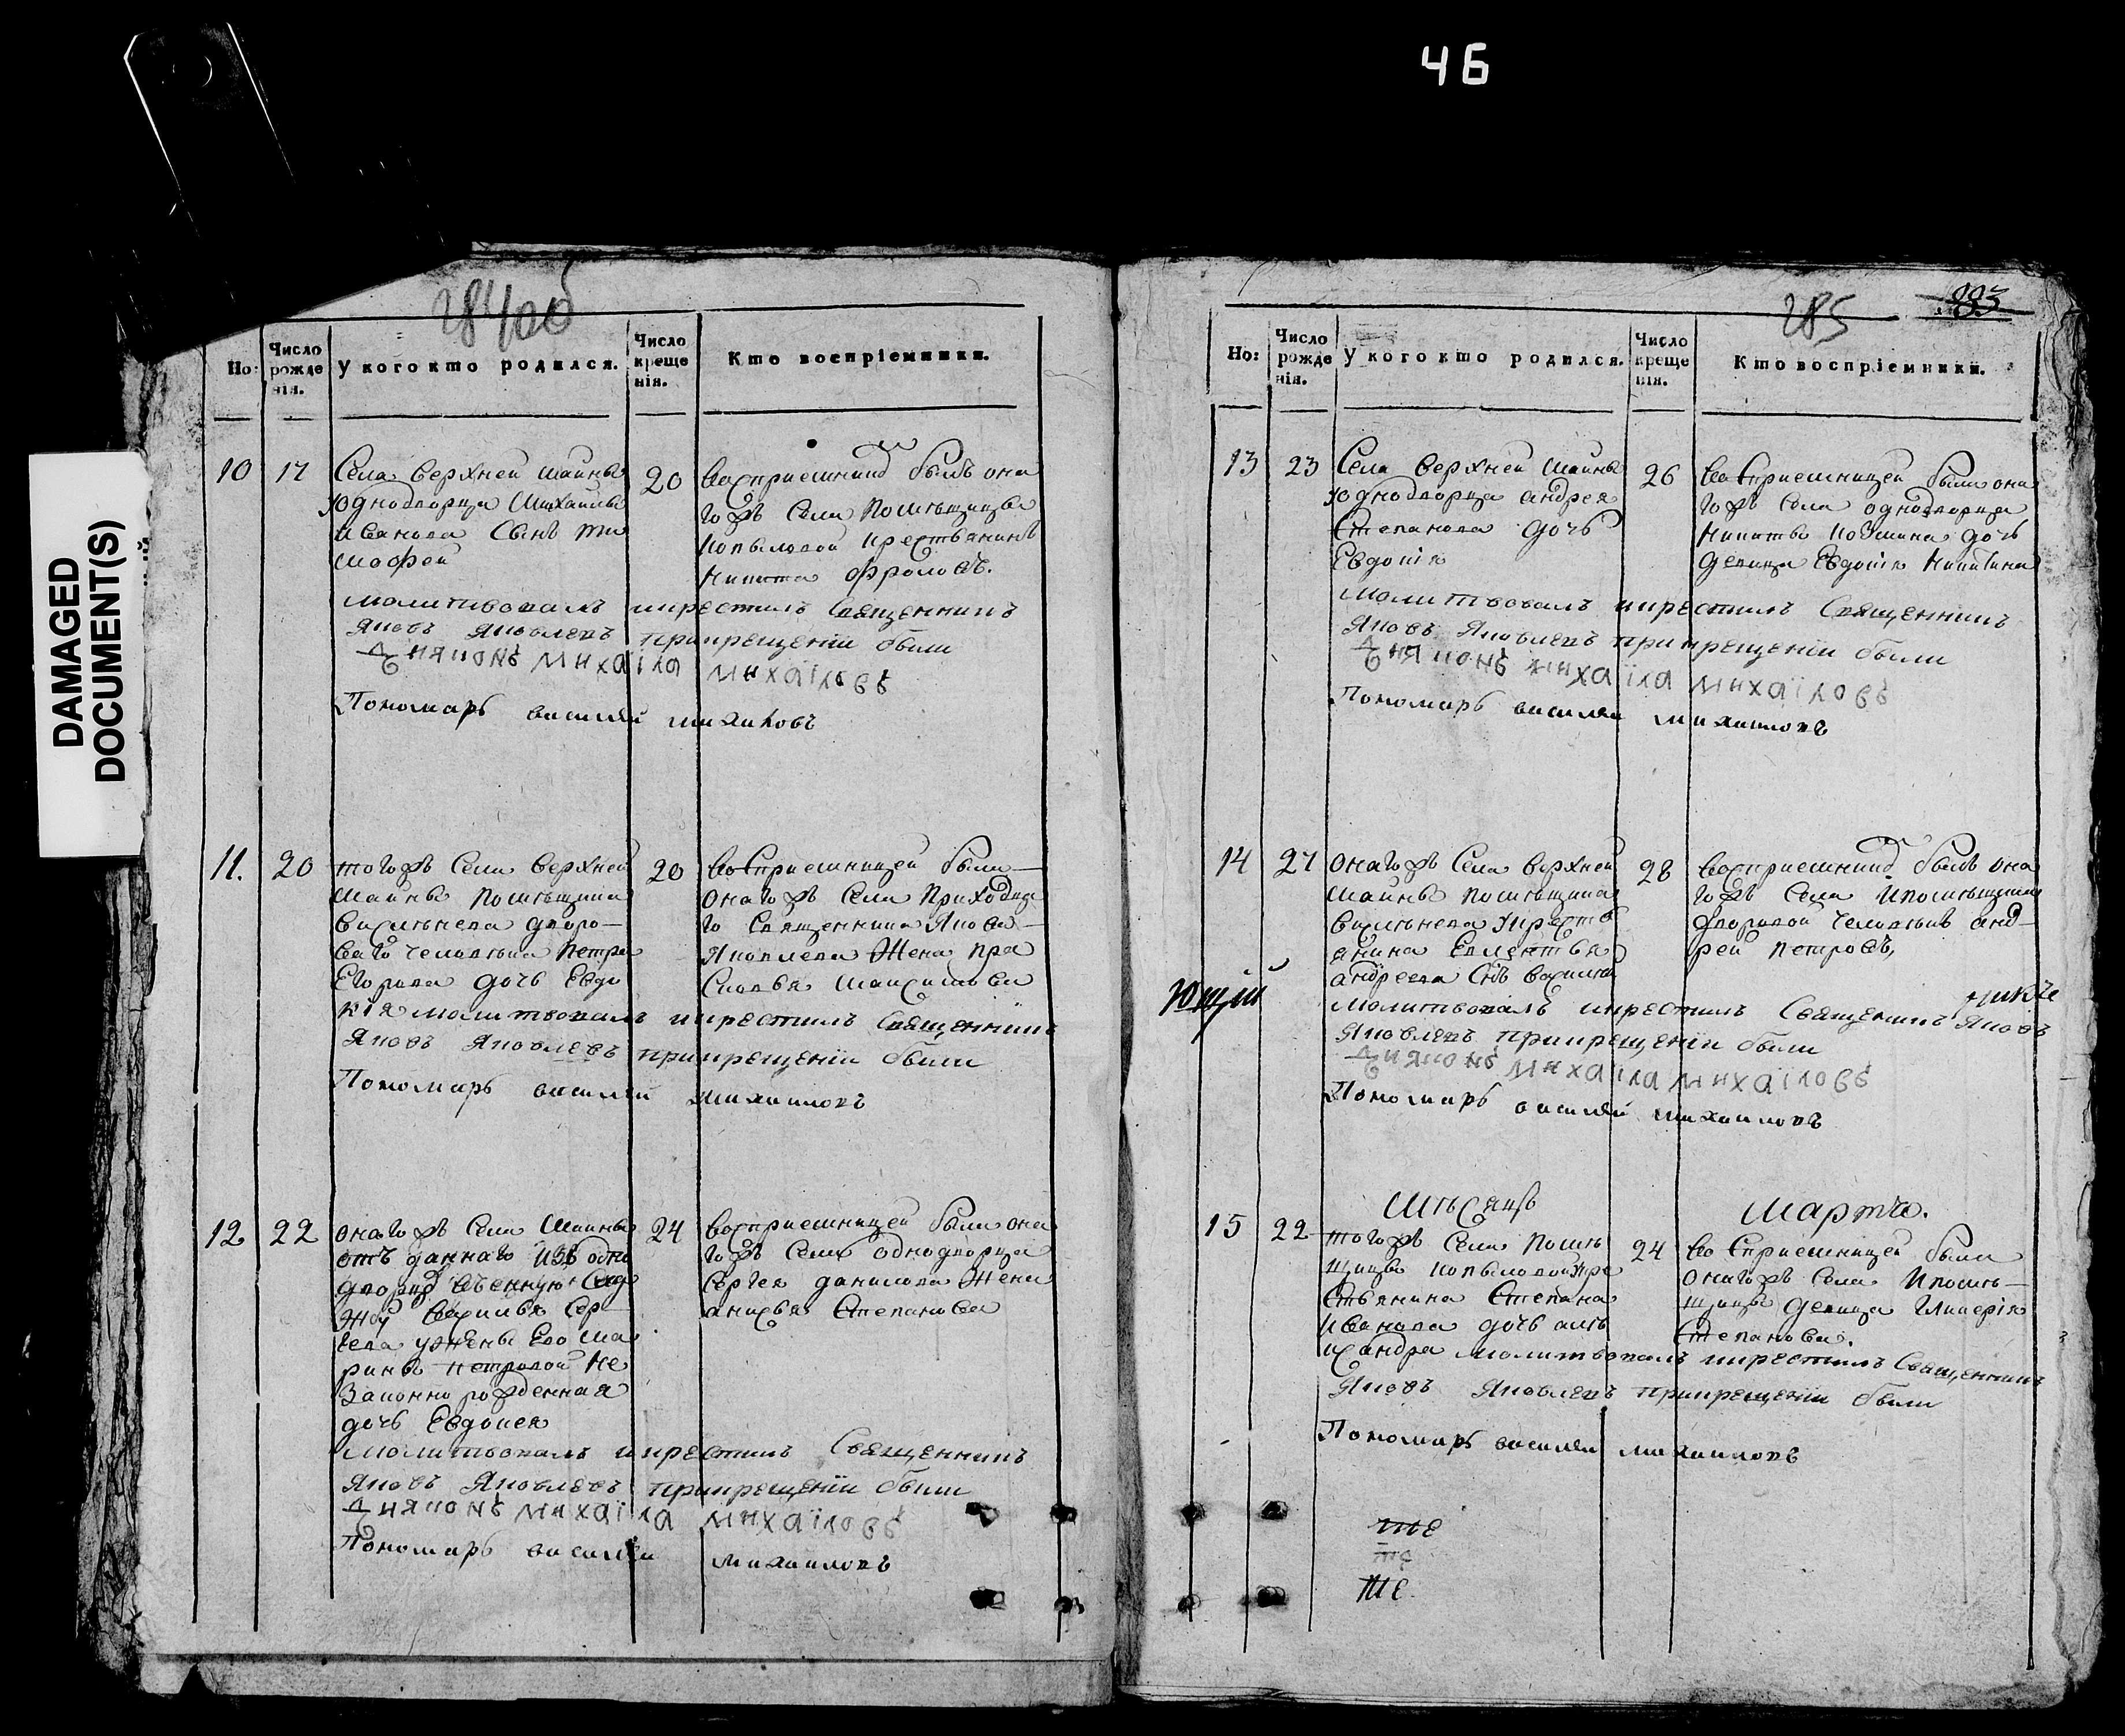 46
DAMAGED
DOCUMENT(S)
284 об
Но:
Число рожденія.
У кого кто родился.
Число крещенія.
Кто воспріемники.
10 17
Села верхней маины
однодворца Михаилы
иванова Сынъ ти
мофей
20
восприемникъ былъ она
гожъ Села помѣщицы
копыловой крестьянинъ
Никита фроловъ.
молитвовалъ икрестилъ Священникъ
Яковъ Яковлевъ прикрещении были
Дияконъ михаіла михаіловъ
Пономарь василей михаиловъ
11. 20
тогожъ Села верхней
маины помѣщика
дворо
ваго человѣка петра
Егорова дочь Евдо
кія
20
восприемницей была
онагожъ Села приходска
го Священника Якова
Яковлева Жена пра
сковья
молитвовалъ икрестилъ Священникъ
Яковъ Яковлевъ прикрещении были
Пономарь василей михаиловъ
12 22
онагожъ Села маины
отъ даннаго изъ одно
Сер
гева ужены Его ма
рины петровой не
Законно рожденная
дочь Евдокея
24
восприемницей была она
гожъ Села однодворца
Сергея данилова Жена
анисья Степанова
молитвовалъ икрестилъ Священникъ
Яковъ Яковлевъ прикрещении были
Дияконъ михаіла михаіловъ
Пономарь василей михаиловъ
285 283
Но:
Число рожденія.
У кого кто родился.
Число крещенія.
Кто воспріемники.
13 23
Села верхней маины
однодворца андрея
Степанова дочь
Евдокія
26
восприемницей была она
гожъ Села однодворца
Никиты дочь
девица Евдокія Никитина
молитвовалъ икрестилъ Священникъ
Яковъ Яковлевъ прикрещении были
Дияконъ михаіла михаіловъ
Пономарь василей михаиловъ
14 27
онагожъ Села верхней
маины помѣщика
крестъ
янина
андреева Сынъ
28
восприемникъ былъ она
гожъ Села ипомѣщика
дворовой человѣкъ анд
рей петровъ,
молитвовалъ икрестилъ Священникъ Яковъ
Яковлевъ прикрещении были
Дияконъ михаіла михаіловъ
Пономарь василей михаиловъ
Мѣсяцъ Марта.
15 22
тогожъ Села помѣ
щицы копыловой кре
стьянина Степана
иванова дочь алѣ
ксандра
24
восприемницей была
онагожъ Села ипомѣ
щицы девица Гликерія
Степанова.
молитвовалъ икрестилъ Священникъ
Яковъ Яковлевъ прикрещении были
Пономарь василей михаиловъ